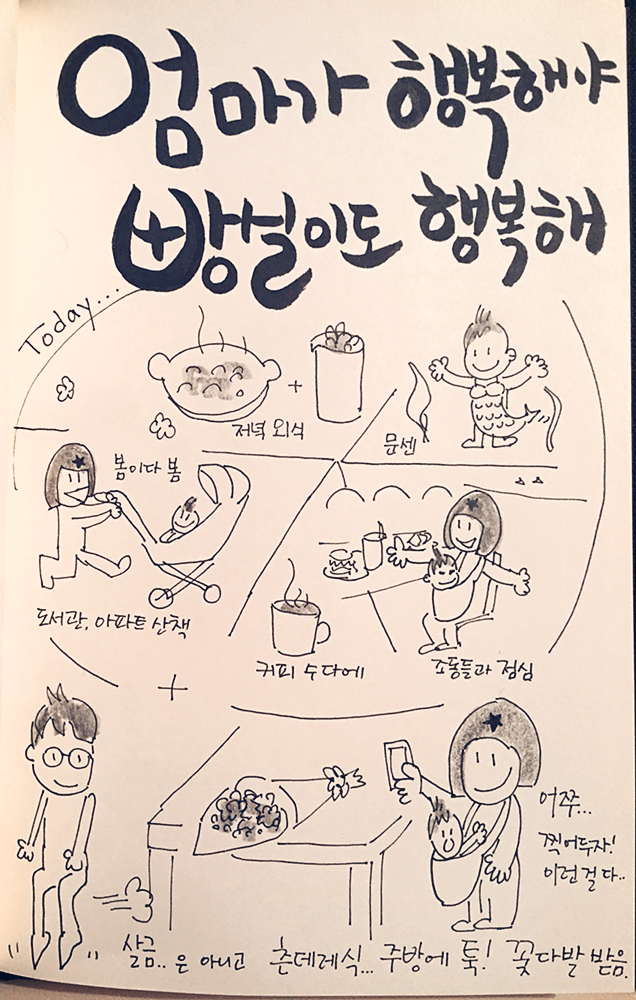 엄마가 행복해야
빵실이도 행복해
Today...
저녁 외식
문센
봄이다 봄
도서관, 아파트 산책
커피 수다에
조동들과 점심
어쭈...
찍어두자!
이런 걸 다..
살금.. 은 아니고 츤데레식... 주방에 툭! 꽃다발 받음.